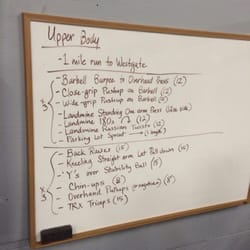 Upper Body
- 1 mile run to Westgate
x3
- Barbell Burpee to Overhead Press (12)
- Close-grip Pushup on Barbell (12)
- Wide-grip Pushup on Barbell (12)
- Landmine Standing One arm Press
- Landmine 180s (12)
- Landmine Russian Twists (12)
- Parking Lot Sprint (1 length)
x3
- Back Raises (15)
- Kneeling Straight arm Lat Pull down (12)
- Y's over Stability Ball (15)
- Chin-ups (8)
- Overhand Pullups (8)
- TRX Triceps (15)